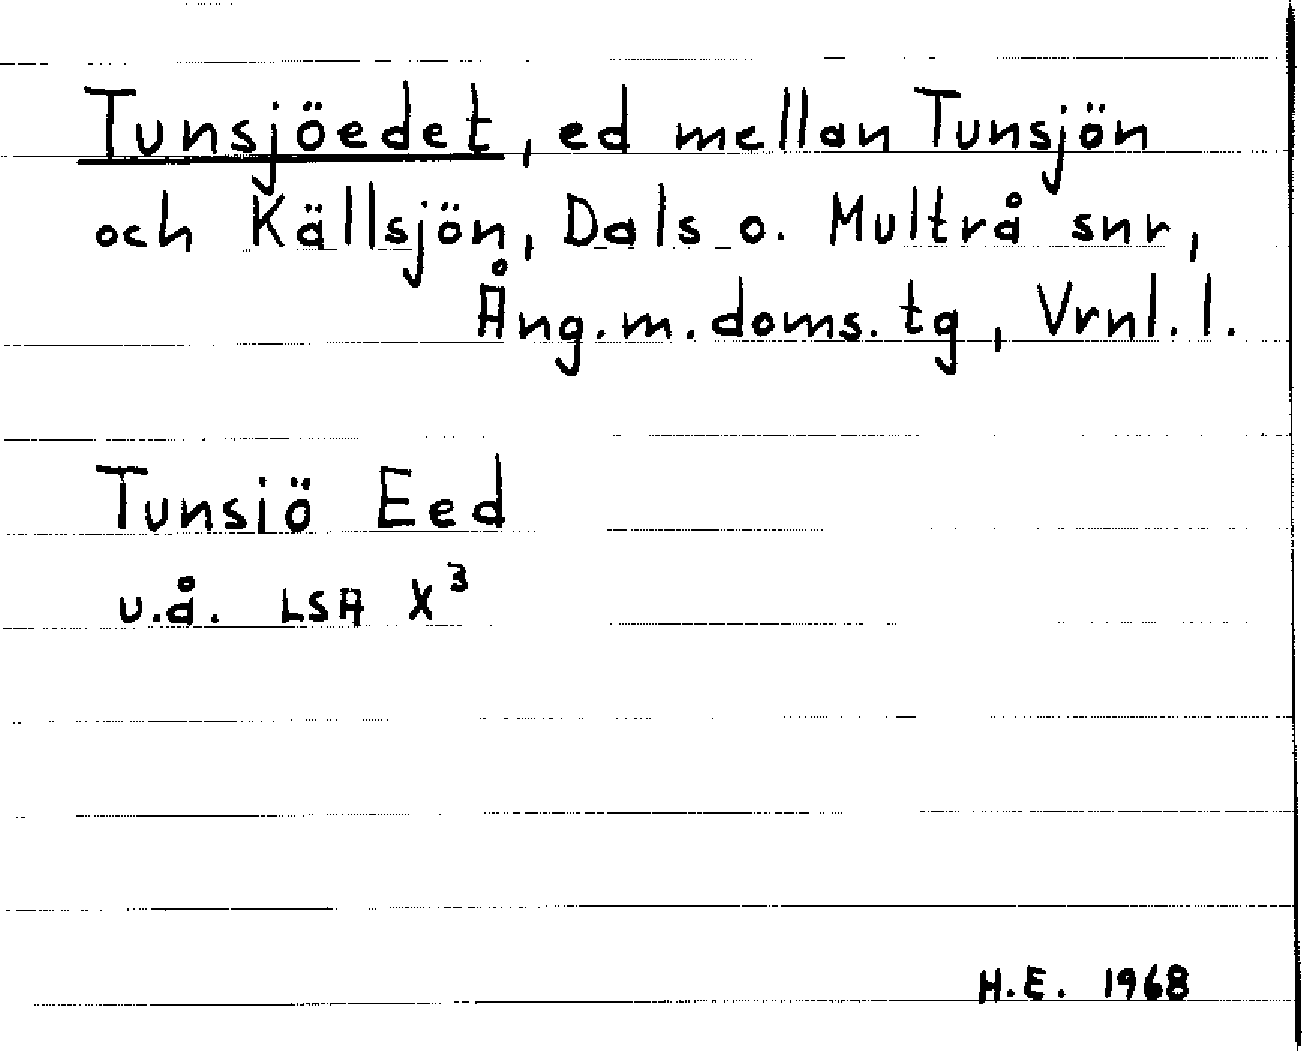 Tunsjöedet, ed mellan Tunsjön
och Källsjön, Dals o. Multrå snr,
Ång.m.doms.tg, Vrnl.l.
Tunsiö Eed
u.å. LSA X³
H.E. 1968